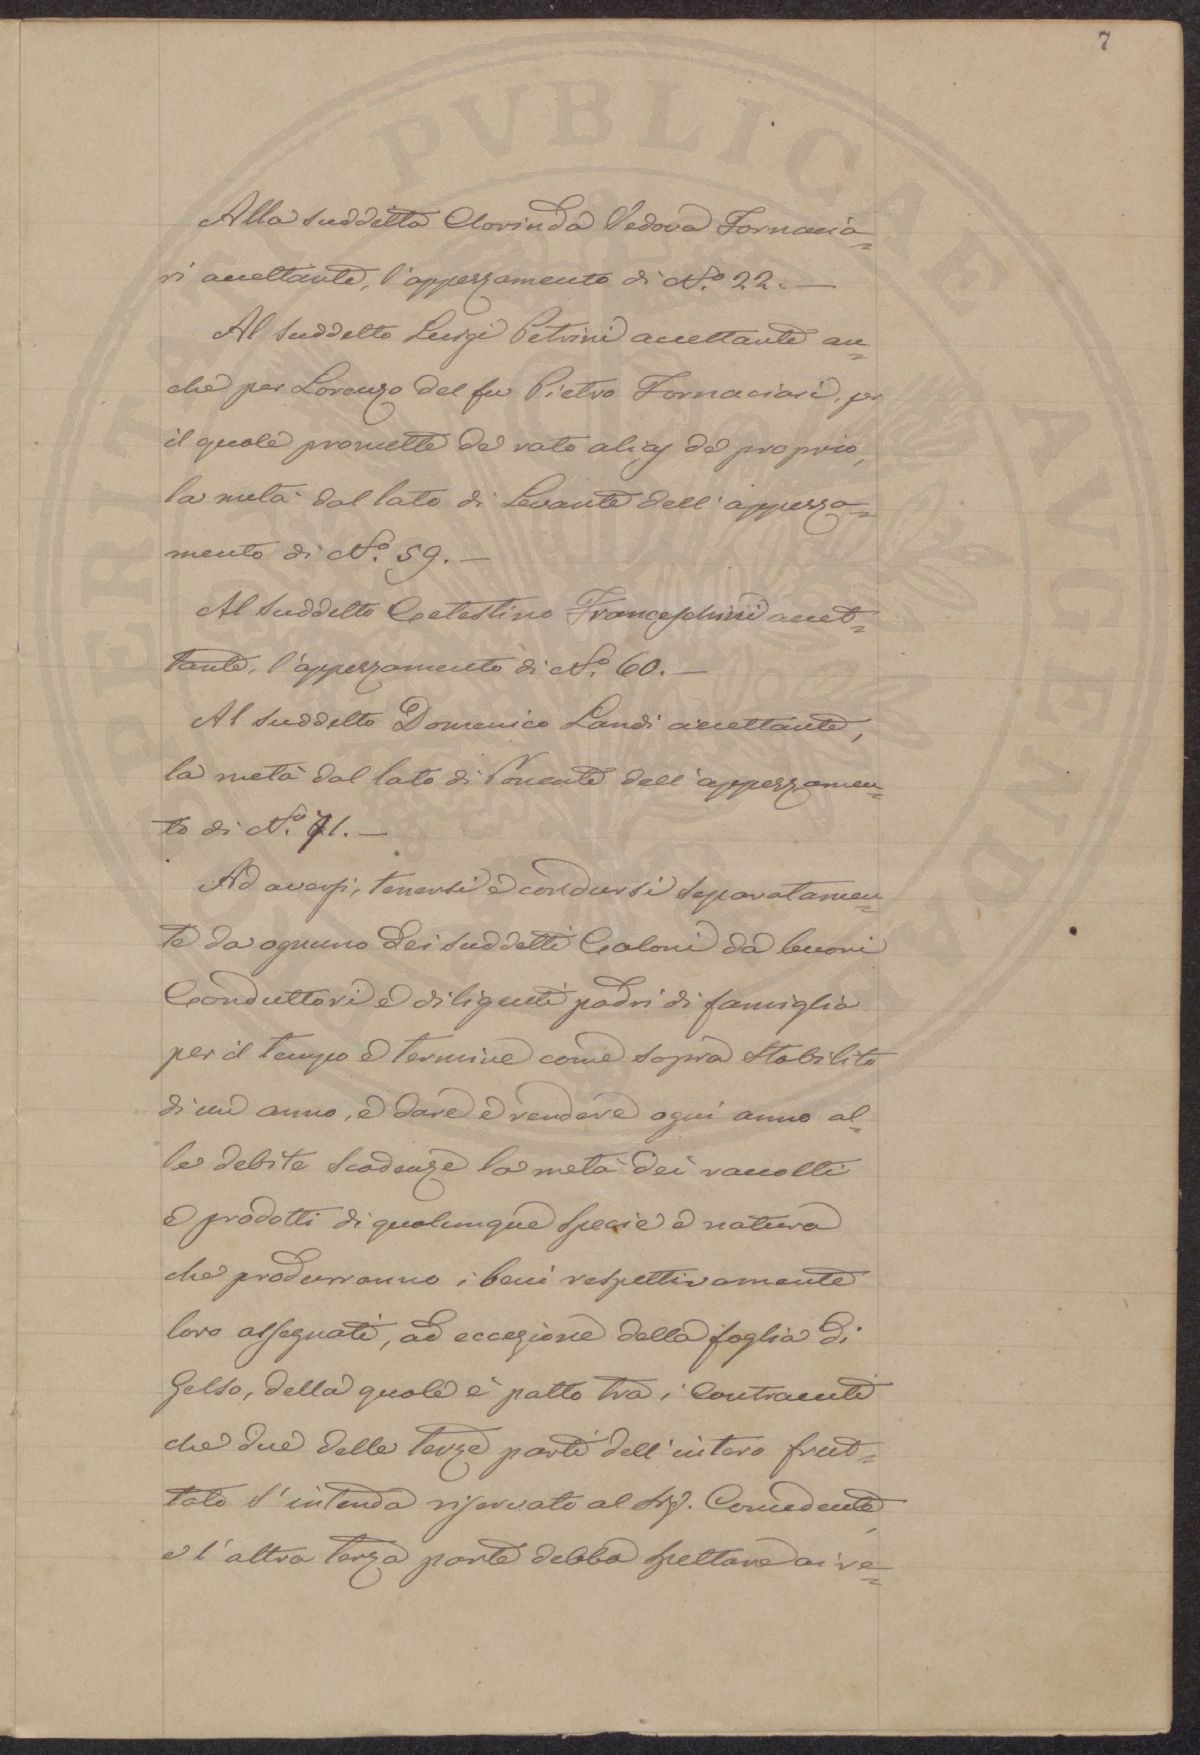 7
Alla suddetta Clorinda Vedova Fornacia=
ri accettante, l'appezzamento di N.º 22. —
Al suddetto Luigi Petrini accettante an=
che per Lorenzo del fu Pietro Fornaciari, per
il quale promette de rato alias de proprio,
la metà dal lato di Levante dell'appezza=
mento di N.º 59. —
Al suddetto Celestino Franceschini accet=
tante, l'appezzamento di N.º 60. —
Al suddetto Domenico Landi accettante,
la metà dal lato di Ponente dell'appezzamen=
to di N.º 71. —
Ad aversi, tenersi e condursi separatamen=
te da ognuno dei suddetti Coloni da buoni
Conduttori e diligenti padri di famiglia
per il tempo e termine come sopra stabilito
di un anno, e dare e rendere ogni anno al=
le debite scadenze la metà dei raccolti
e prodotti di qualunque specie e natura
che produrranno i beni respettivamente
loro assegnati, ad eccezione della foglia di
Gelso, della quale è patto tra i Contraenti
che due delle terze parti dell'intero frut=
tato s'intenda riservato al Sig. Concedente,
e l'altra terza parte debba spettare ai re=
PVBLICAE